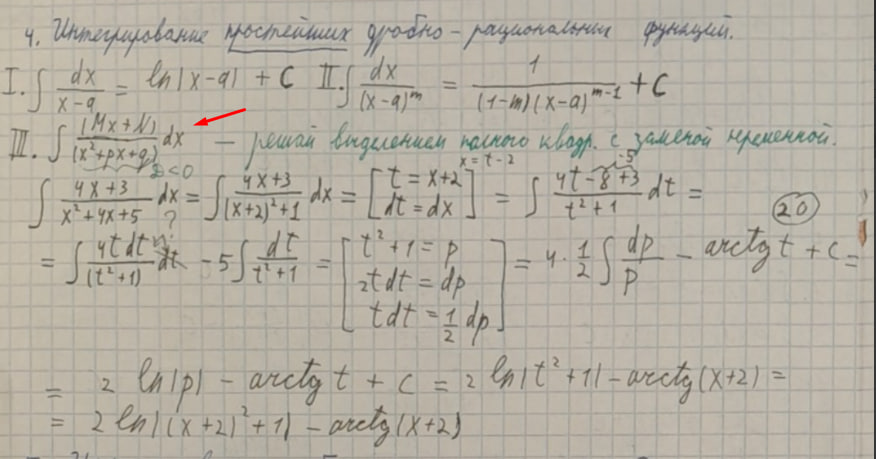 4. Интегрирование простейших дробно-рациональных функций.
I. ∫ dx/(x-a) = ln|x-a| + C II. ∫ dx/(x-a)^m = 1/((1-m)(x-a)^(m-1)) + C
III. ∫ (Mx+N)/(x²+px+q) dx — решай выделением полного квадр. с заменой переменной.
D<0 x=t-2 -5
∫ (4x+3)/(x²+4x+5) dx = ∫ (4x+3)/((x+2)²+1) dx = [t = x+2; dt = dx] = ∫ (4t-8+3)/(t²+1) dt =
? 20
= ∫ 4t dt/(t²+1) dt - 5∫ dt/(t²+1) = [t²+1 = p; 2t dt = dp; t dt = 1/2 dp] = 4·1/2 ∫ dp/p - arctg t + C =
= 2 ln|p| - arctg t + C = 2 ln|t²+1| - arctg(x+2) =
= 2 ln|(x+2)²+1| - arctg(x+2)